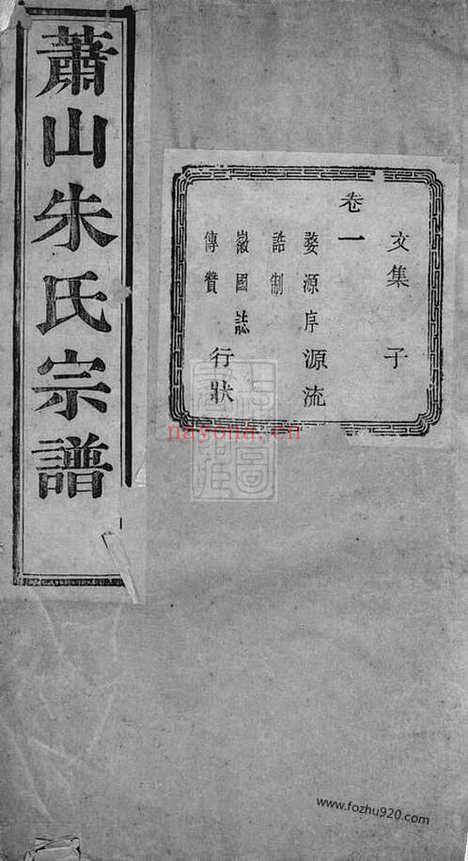 蕭山朱氏宗譜
文集 子
卷一
婺源序 源流
誥制
徽國誌 行狀
傳贊
nayona.cn
www.fozhu920.com